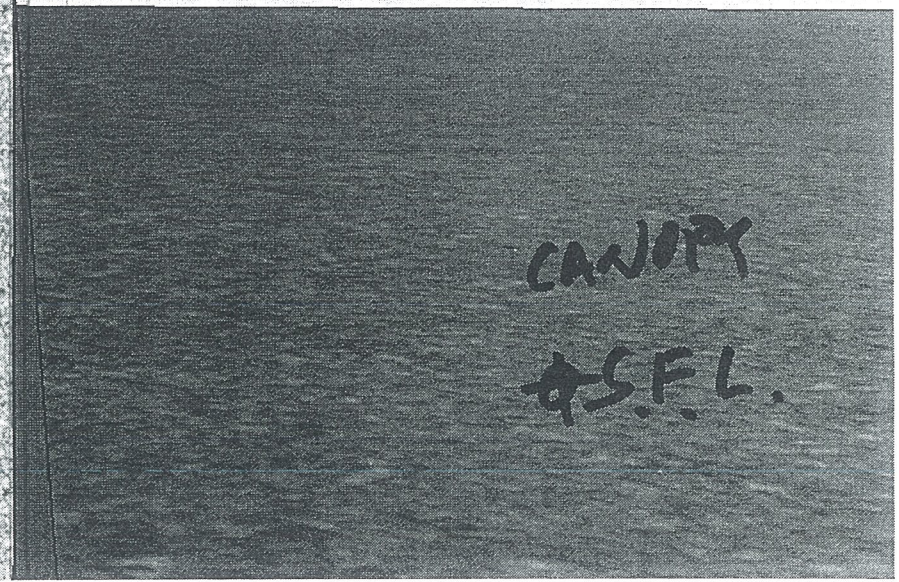 CANOPY
S.F.L.